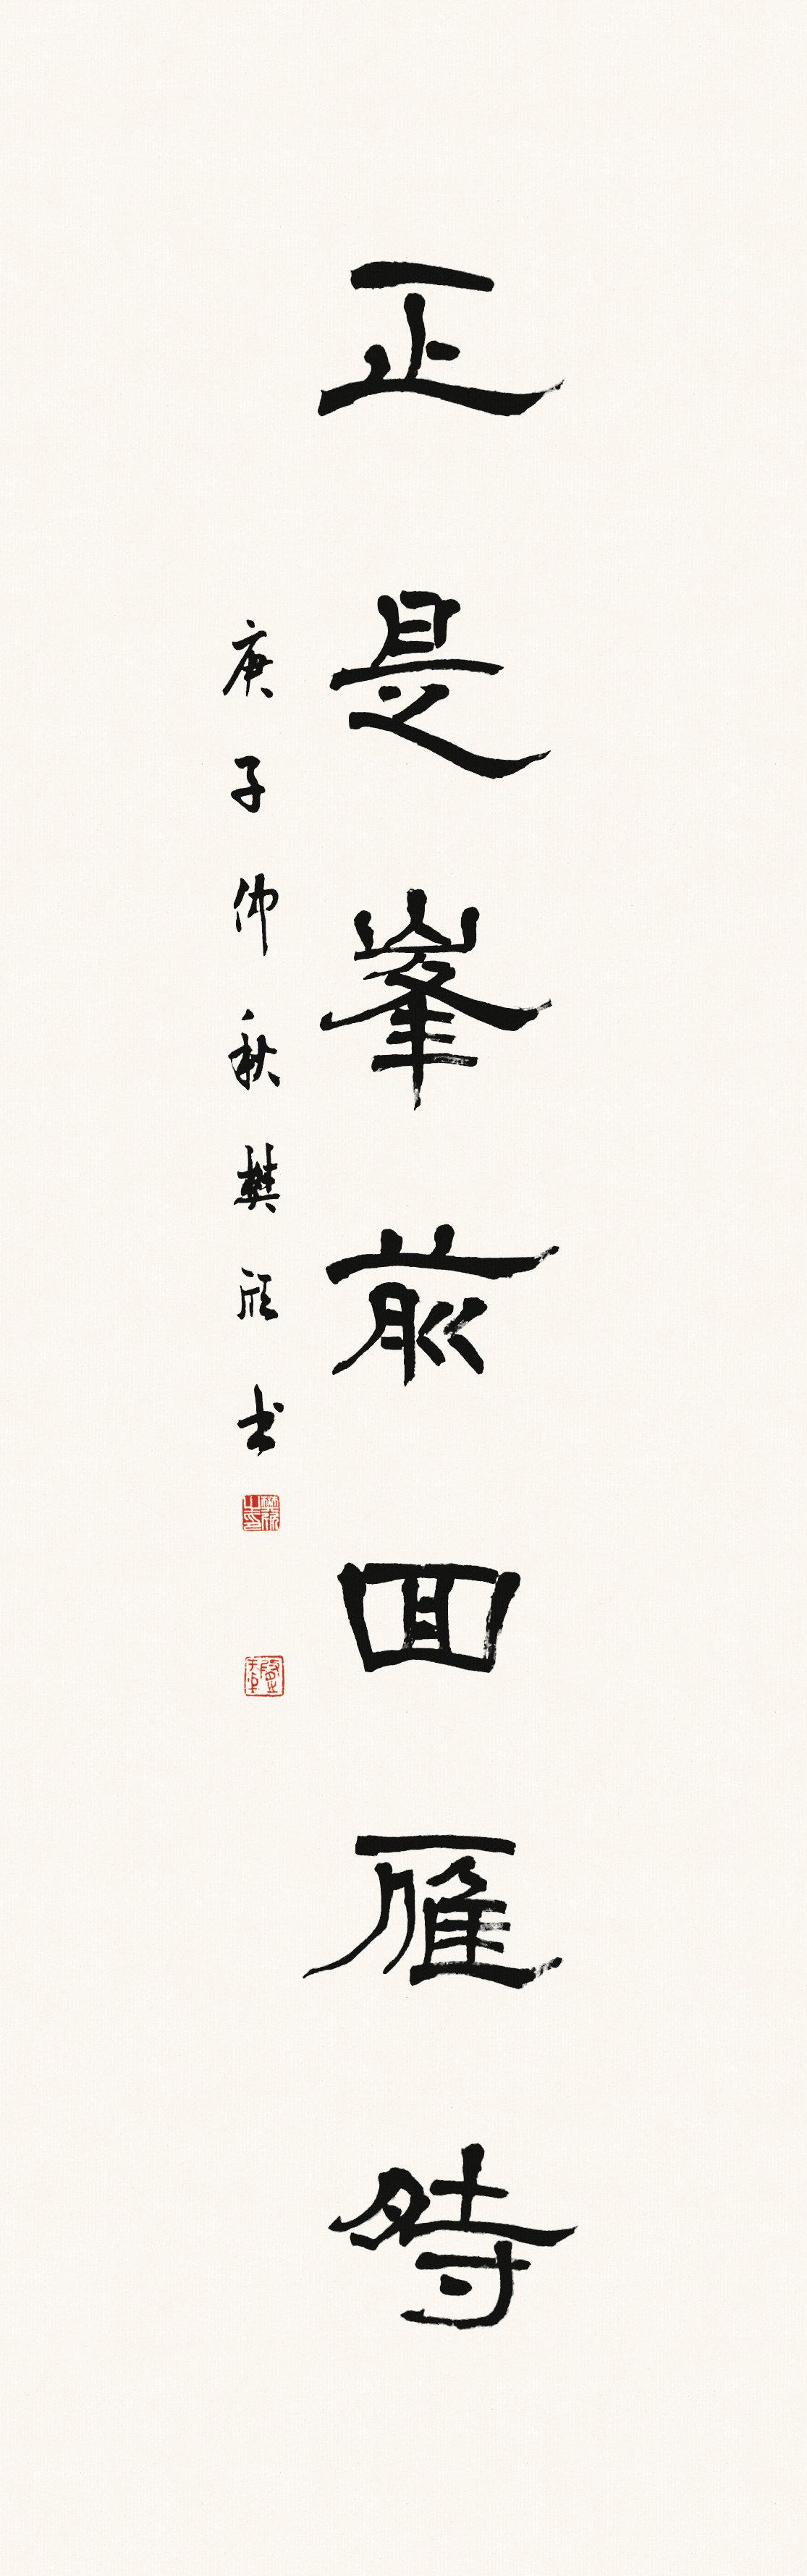 正是峯前回雁時
庚子仲秋樊顾书